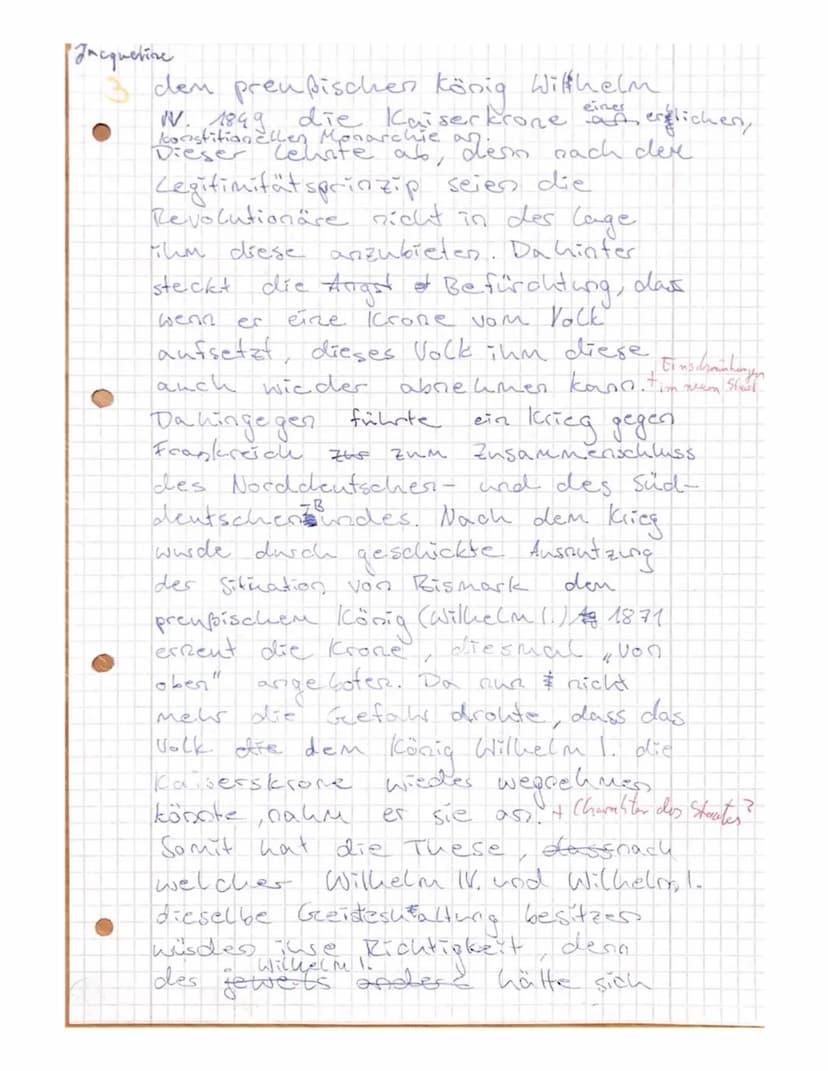 Jacqueline
3
dem preußischen König Wilhelm
IV. 1849 die Kaiserkrone einer erblichen,
konstitionellen Monarchie an.
Dieser lehnte ab, denn nach dem
Legitimitätsprinzip seien die
Revolutionäre nicht in der Lage
ihm diese anzubieten. Dahinter
steckt die Angst Befürchtung, dass
wenn er eine Krone vom Volk
aufsetzt, dieses Volk ihm diese
auch wieder abnehmen kann. + Einschränkungen
im neuen Staat
Dahingegen führte ein Krieg gegen
Frankreich zur zum Zusammenschluss
des Norddeutschen- und des Süd-
deutschen Bundes. Nach dem Krieg
wurde durch geschickte Ausnutzung
der Situation von Bismark dem
preußischem König (Wilhelm I.) 1871
erneut die Krone, diesmal „von
oben" angeboten. Da nun nicht
mehr die Gefahr drohte, dass das
Volk die dem König Wilhelm I. die
Kaiserskrone wieder wegnehmen
könnte, nahm er sie an. + Charakter des Staates?
Somit hat die These, dass nach
welcher Wilhelm IV. und Wilhelm I.
dieselbe Geisteshaltung besitzen
würden ihre Richtigkeit, denn
Wilhelm I.
der jeweils andere hätte sich